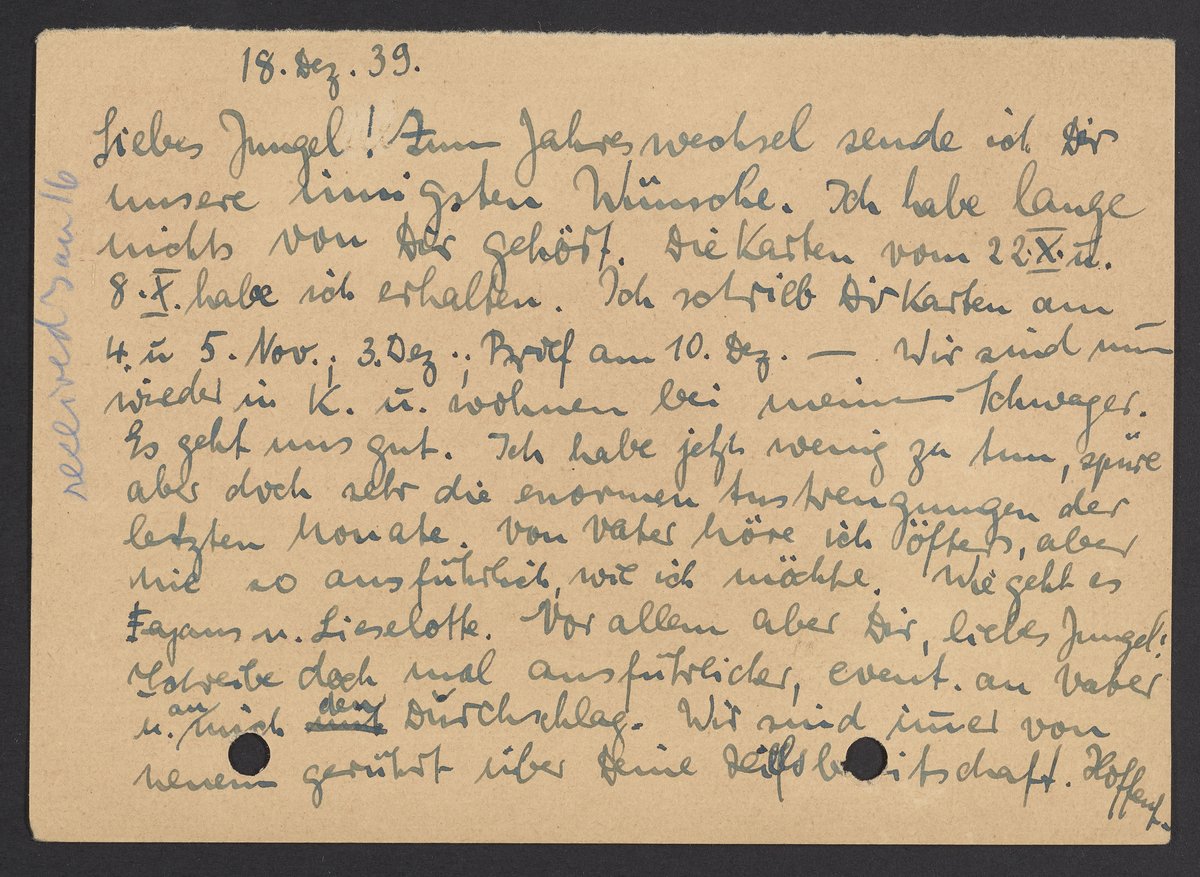 18. Dez. 39.
Liebes Jungel! Zum Jahreswechsel sende ich Dir
unsere innigsten Wünsche. Ich habe lange
nichts von Dir gehört. Die Karten vom 22.X. u.
8.X. habe ich erhalten. Ich schrieb Dir Karten am
4. u 5. Nov.; 3. Dez.; Brief am 10. Dez. — Wir sind nun
wieder in K. u. wohnen bei meinem Schwager.
Es geht uns gut. Ich habe jetzt wenig zu tun, spüre
aber doch sehr die enormen Anstrengungen der
letzten Monate. Von Vater höre ich öfters, aber
nie so ausführlich, wie ich möchte. Wie geht es
Fajans u. Lieselotte. Vor allem aber Dir, liebes Jungel!
Schreibe doch mal ausführlicher, event. an Vater
u. an mich den Durchschlag. Wir sind im̄er von
neuem gerührt über Deine Hilfsbereitschaft. Hoffentl.
received Jan 16